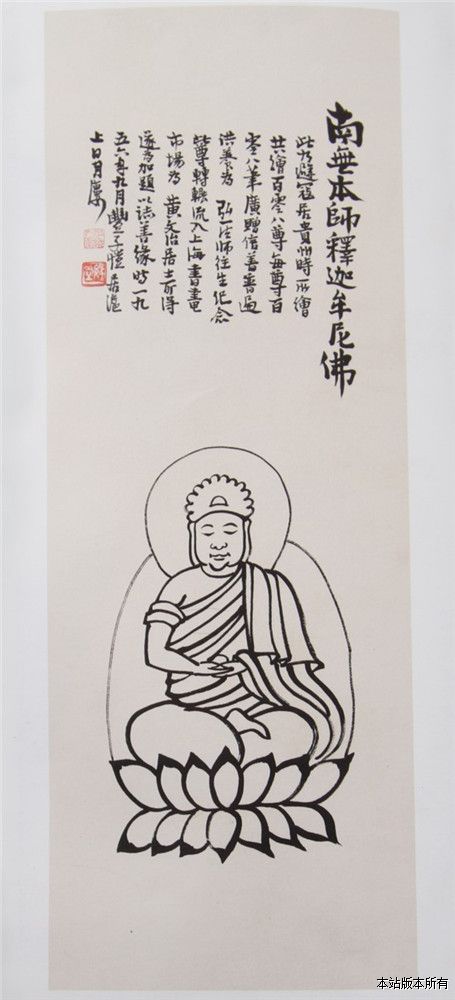 南無本師釋迦牟尼佛
此乃避寇居貴州時所繪
共繪百零八尊每尊百
零八筆廣贈信善普遍
供養為 弘一法師往生紀念
此尊轉輾流入上海書畫
市場為 黃文治居士所得
遂為加題以誌善緣時一九
五六年九月豐子愷客滬
上日月樓
本站版本所有